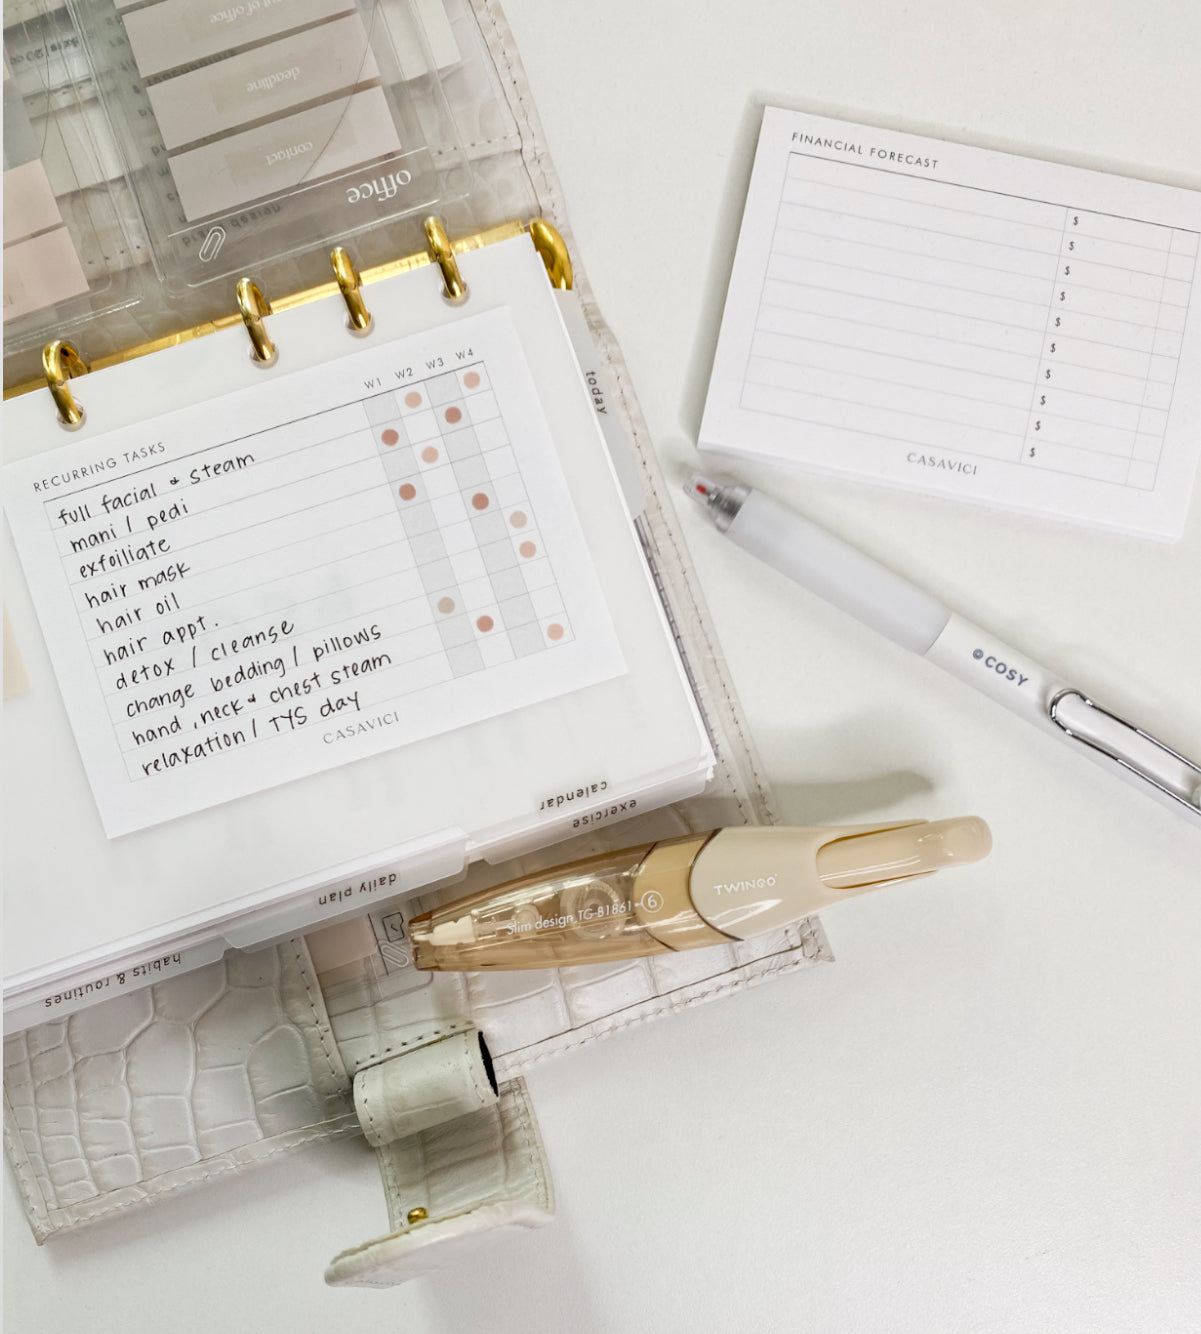 out of office
deadline
contact
office
FINANCIAL FORECAST
$
$
$
$
$
$
$
$
$
$
CASAVICI
today
W1 W2 W3 W4
RECURRING TASKS
full facial & steam
mani / pedi
exfoiliate
hair mask
hair oil
hair appt.
detox / cleanse
change bedding / pillows
hand, neck & chest steam
relaxation / TYS day
CASAVICI
©COSY
calendar
exercise
daily plan
habits & routines
TWINGO
Slim design TG-B1861-6